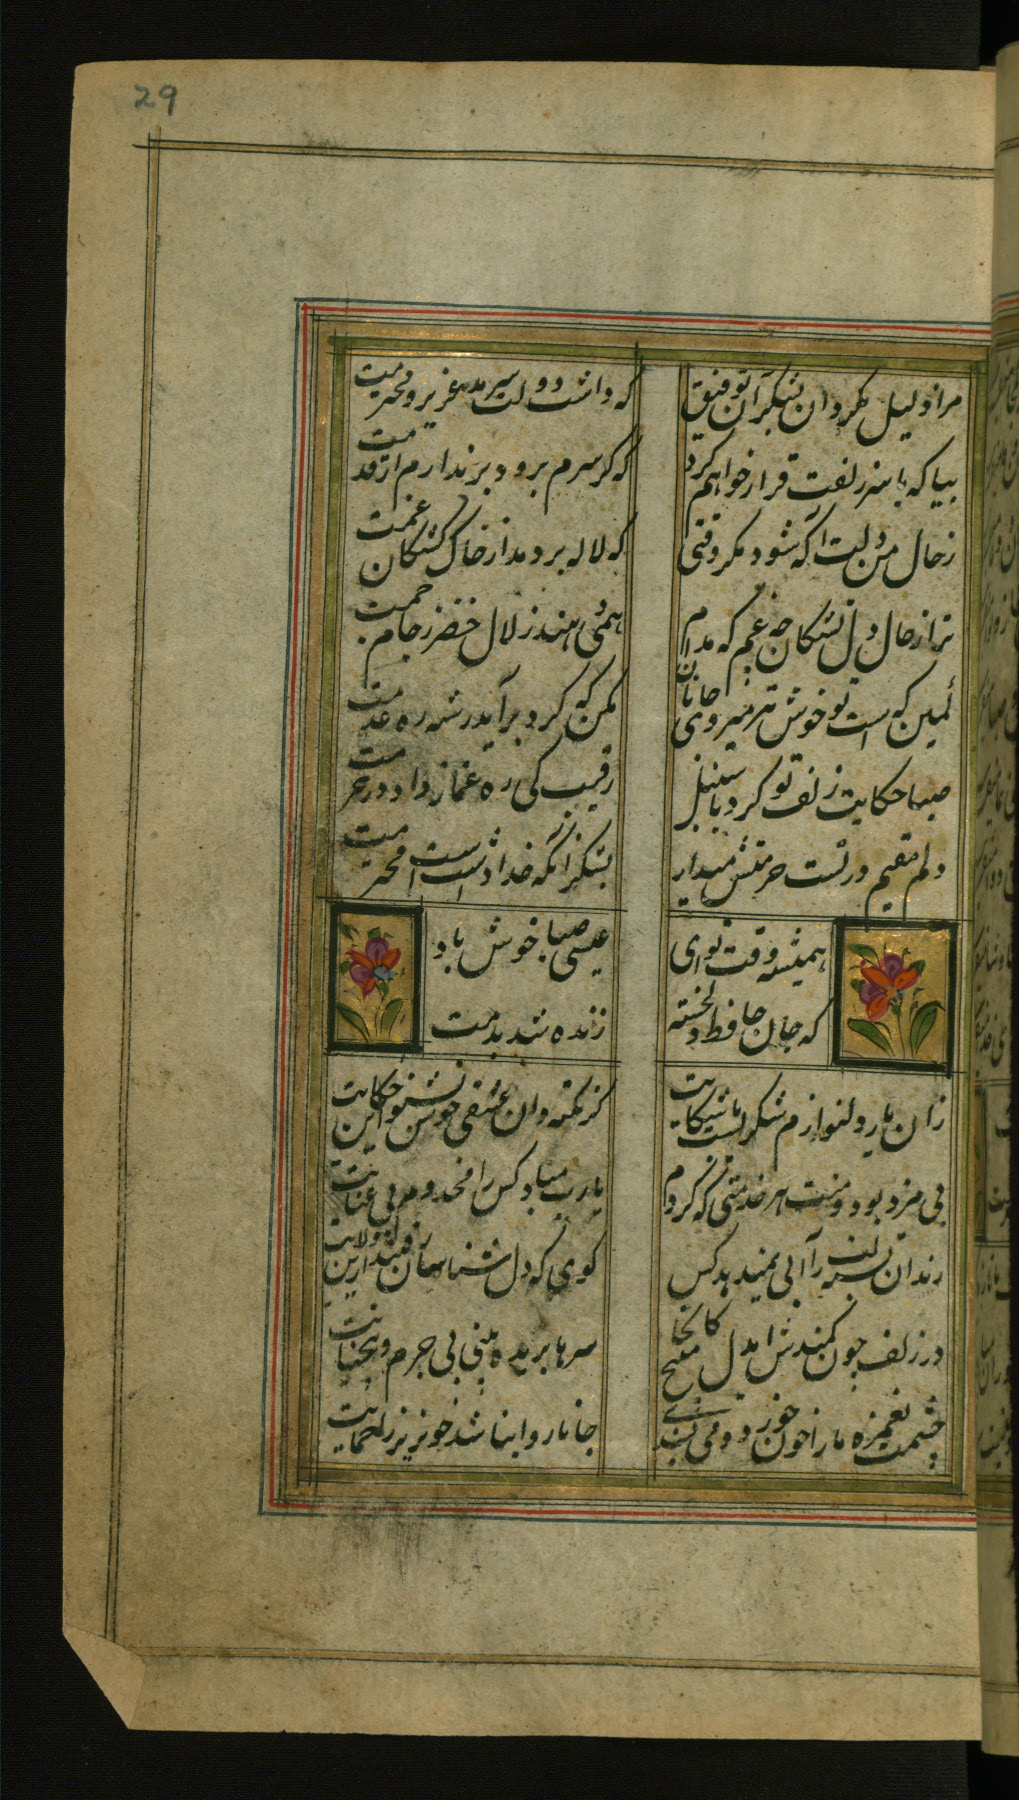 29
مرا ذلیل مگردان بشکر آن توفیق که داشت دولت سرمدت عزیز و محترمت
بیا که با سر زلفت قرار خواهم کرد که گر سرم برود بر ندارم از قدمت
زحال من دلت آگه شود مگر وقتی که لاله بردمد از خاک کشتگان غمت
ترا ز حال دل تشنگان چه غم که مدام همی دهند زلال خضر ز جام جمت
کمین که است تو خوش تیز میروی جانان مکن که گرد برآید ز شه ره عدمت
صبا حکایت زلف تو کرد با سنبل رقیب کی ره غماز داد در حرمت
دلم مقیم در تست حرمتش میدار بشکر آنکه خدا داشت است محترمت
همیشه وقت تو ای عیسی صبا خوش باد
که جان حافظ دلخسته زنده شد بدمت
زان یار دلنوازم شکریست با شکایت گر نکته دان عشقی خوش بشنو این حکایت
بی مزد بود و منت هر خدمتی که کردم یا رب مباد کس را مخدوم بی عنایت
رندان تشنه لب را آبی نمیدهد کس گوی که دل شناسان رفتند ازین ولایت
در زلف چون کمندش ای دل مپیچ کانجا سرها بریده بینی بی جرم و بیجنایت
چشمت بغمزه ما را خون خورد و می پسندی جانا روا نباشد خونریز را حمایت